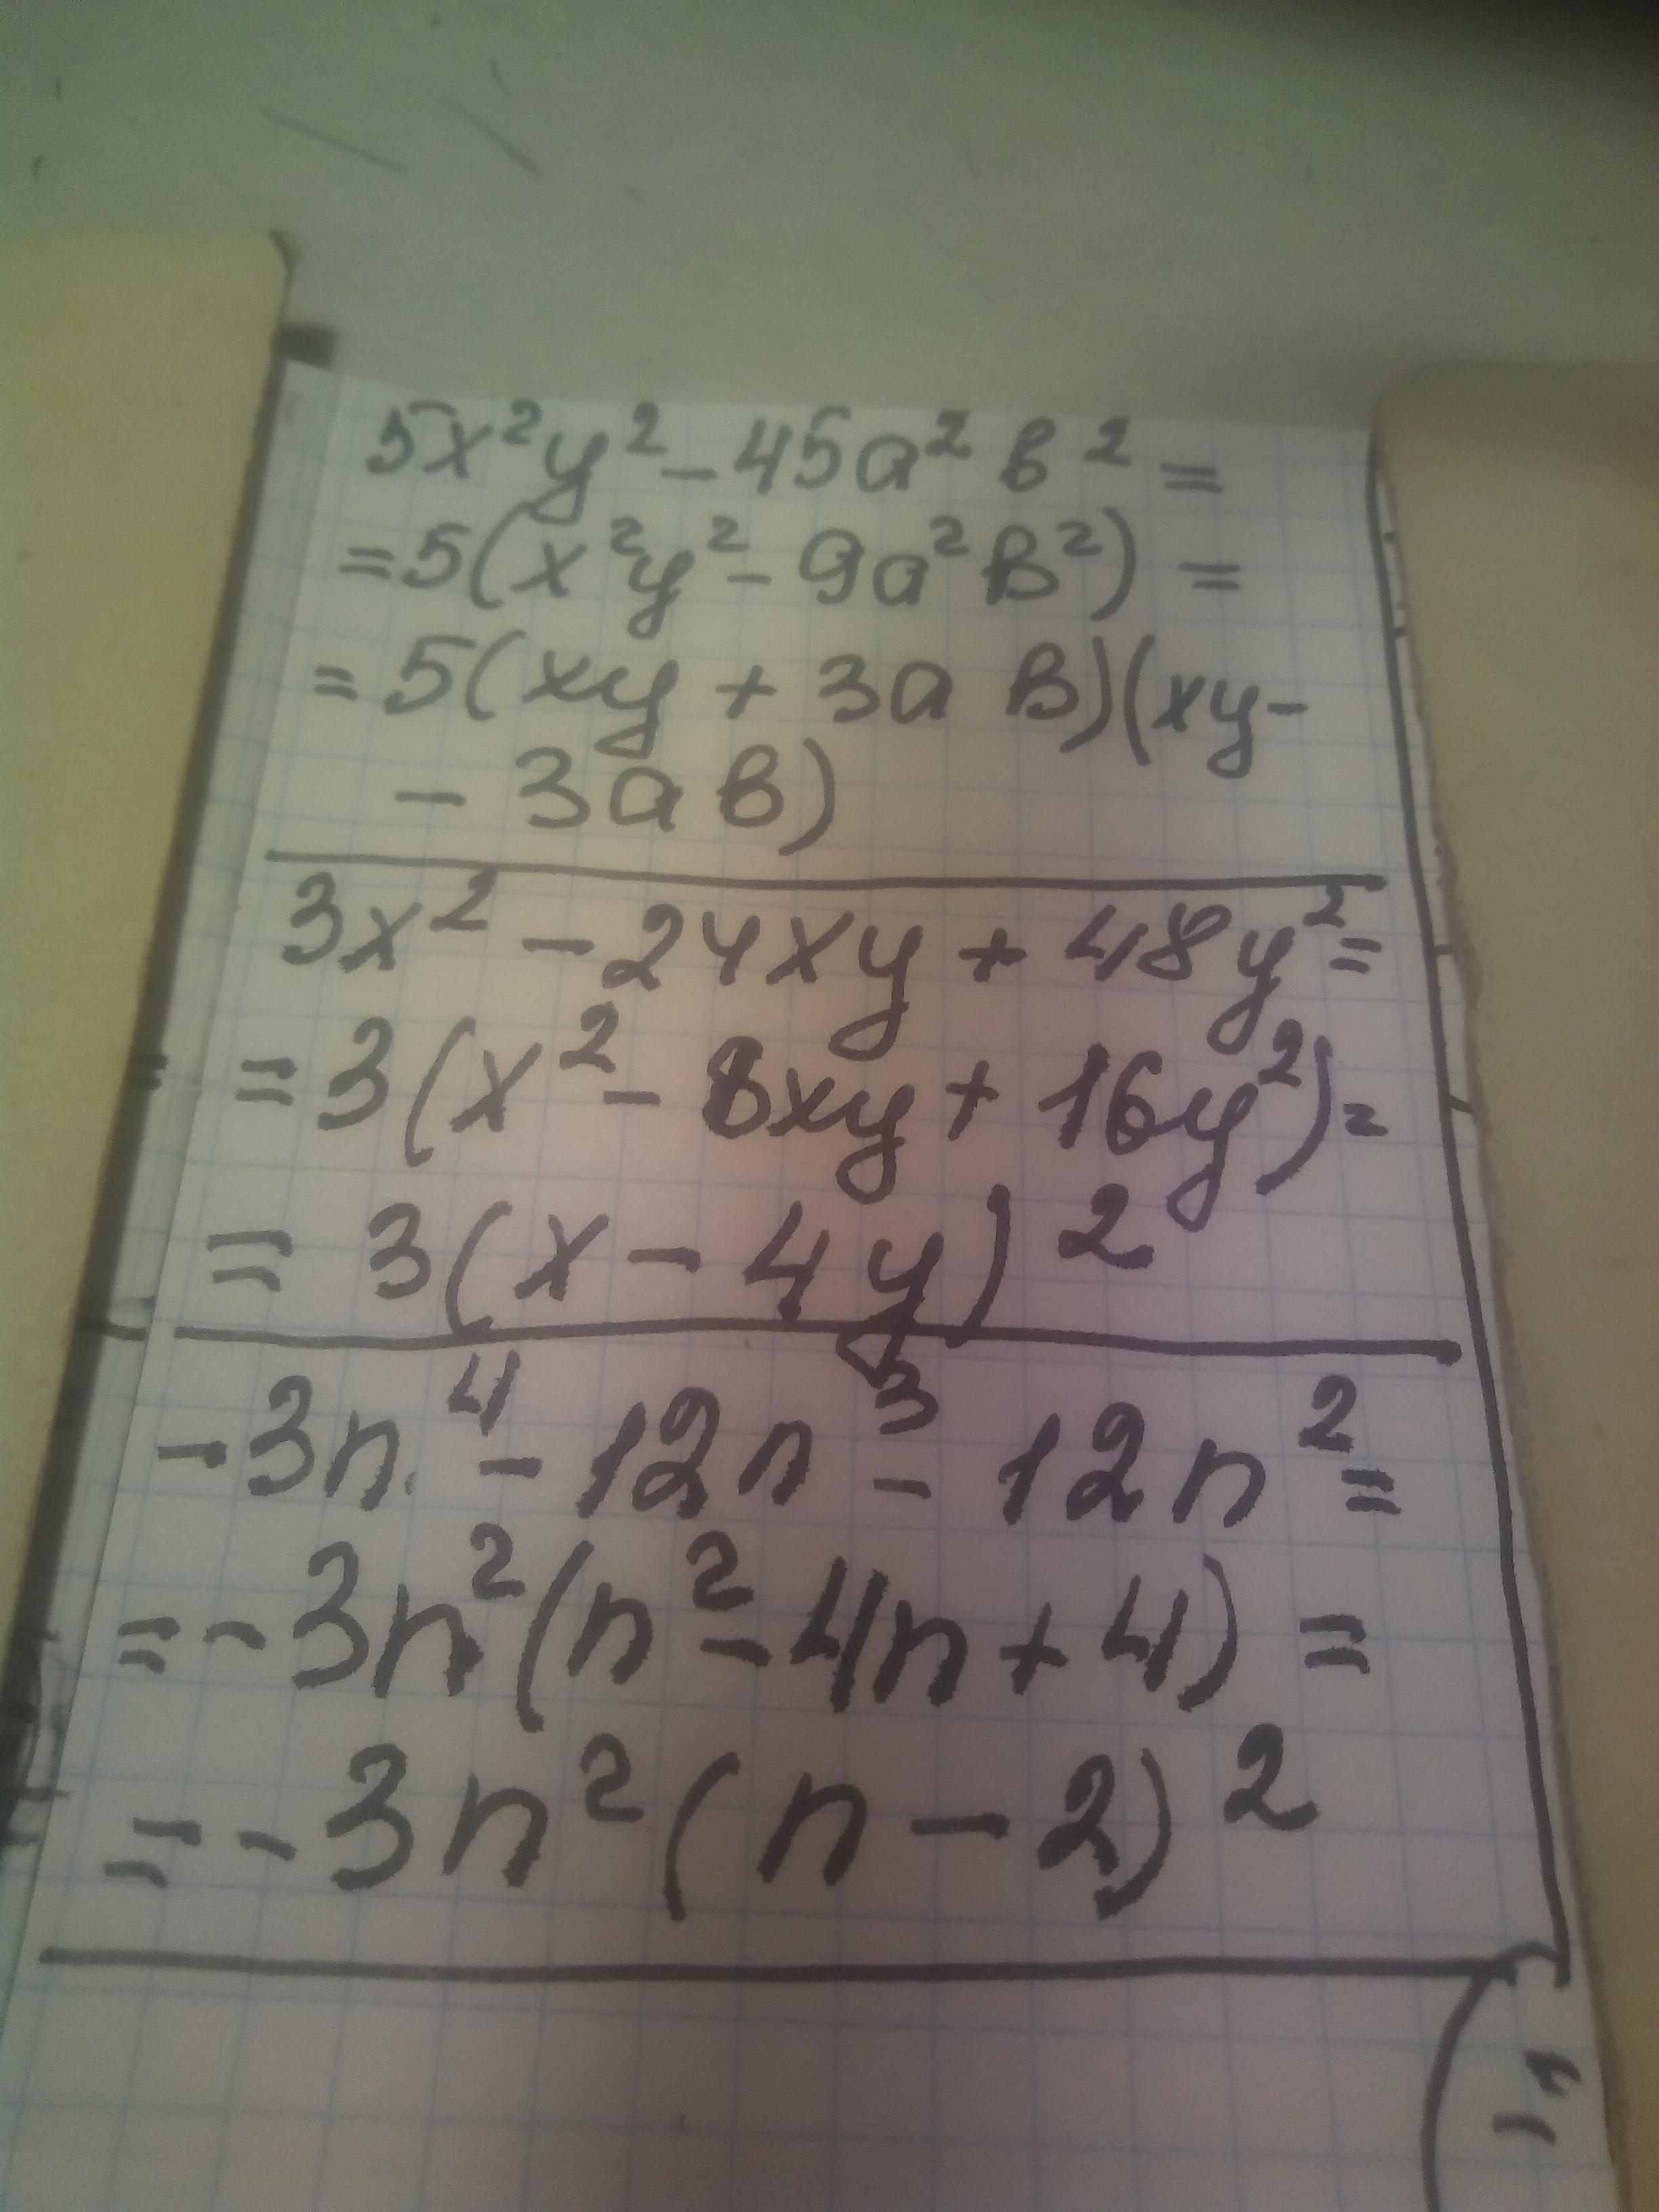 5x²y² - 45a²b² =
= 5(x²y² - 9a²b²) =
= 5(xy + 3ab)(xy -
- 3ab)
3x² - 24xy + 48y² =
= 3(x² - 8xy + 16y²) =
= 3(x - 4y)²
-3n⁴ - 12n³ - 12n² =
= -3n²(n² - 4n + 4) =
= -3n²(n - 2)²